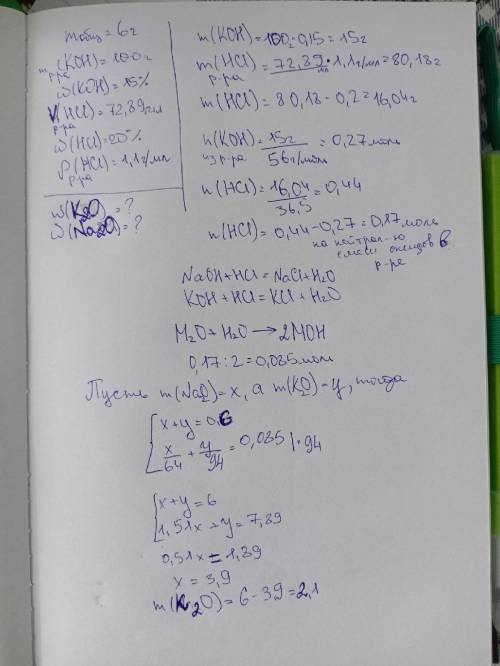 mобщ = 6г
m р-ра (KOH) = 100г
ω(KOH) = 15%
V р-ра (HCl) = 72,89мл
ω(HCl) = 20%
ρ р-ра (HCl) = 1,1г/мл
ω(K2O) = ?
ω(Na2O) = ?
m(KOH) = 100г · 0,15 = 15г
m р-ра (HCl) = 72,89мл · 1,1г/мл = 80,18г
m(HCl) = 80,18 · 0,2 = 16,04г
n(KOH) из р-ра = 15г / 56г/моль = 0,27моль
n(HCl) = 16,04 / 36,5 = 0,44
n(HCl) = 0,44 - 0,27 = 0,17моль
на нейтрал-ю
смеси оксидов в
р-ре
NaOH + HCl = NaCl + H2O
KOH + HCl = KCl + H2O
M2O + H2O → 2MOH
0,17 : 2 = 0,085моль
Пусть m(Na2O) = x, а m(K2O) = y, тогда
x + y = 0,6
x/64 + y/94 = 0,085 | · 94
x + y = 6
1,51x + y = 7,89
0,51x = 1,89
x = 3,9
m(K2O) = 6 - 39 = 2,1